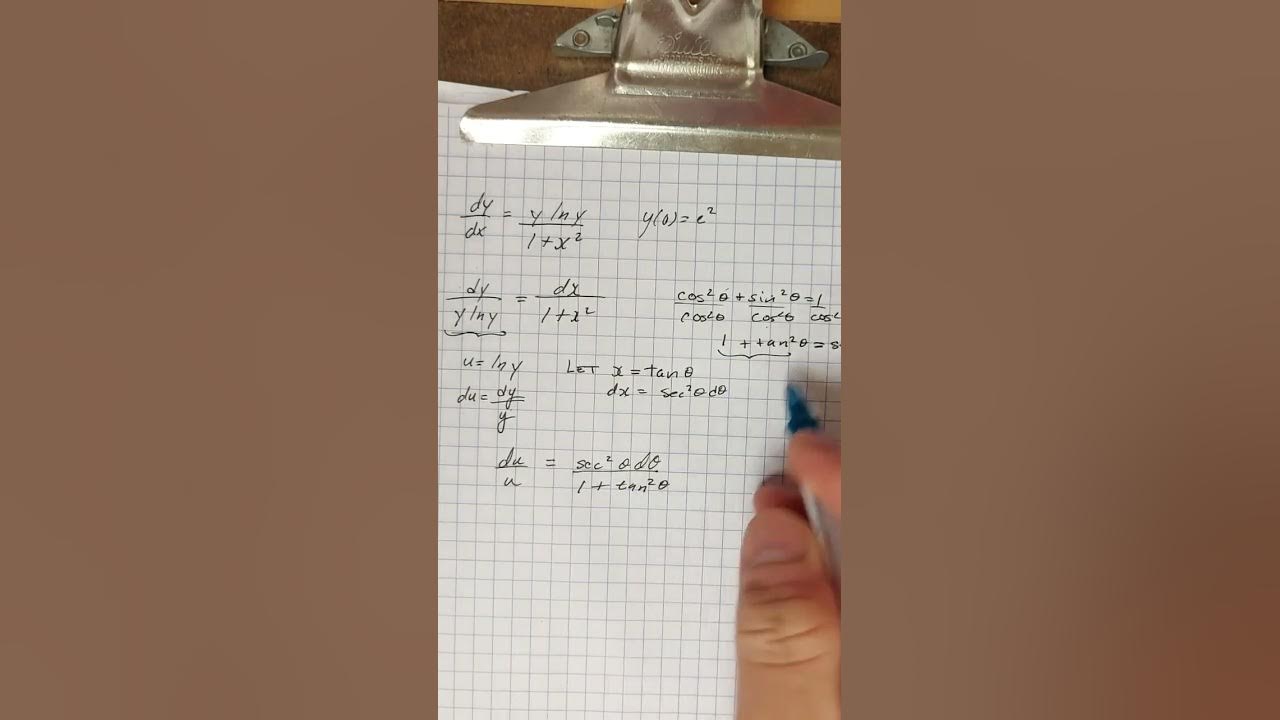 dy/dx = y ln y / 1+x² y(0) = e²
dy / y ln y = dx / 1+x²
cos²θ/cos²θ + sin²θ/cos²θ = 1/cos²
1 + tan²θ = s
u = ln y
LET x = tan θ
du = dy/y
dx = sec²θ dθ
du/u = sec²θ dθ / 1 + tan²θ